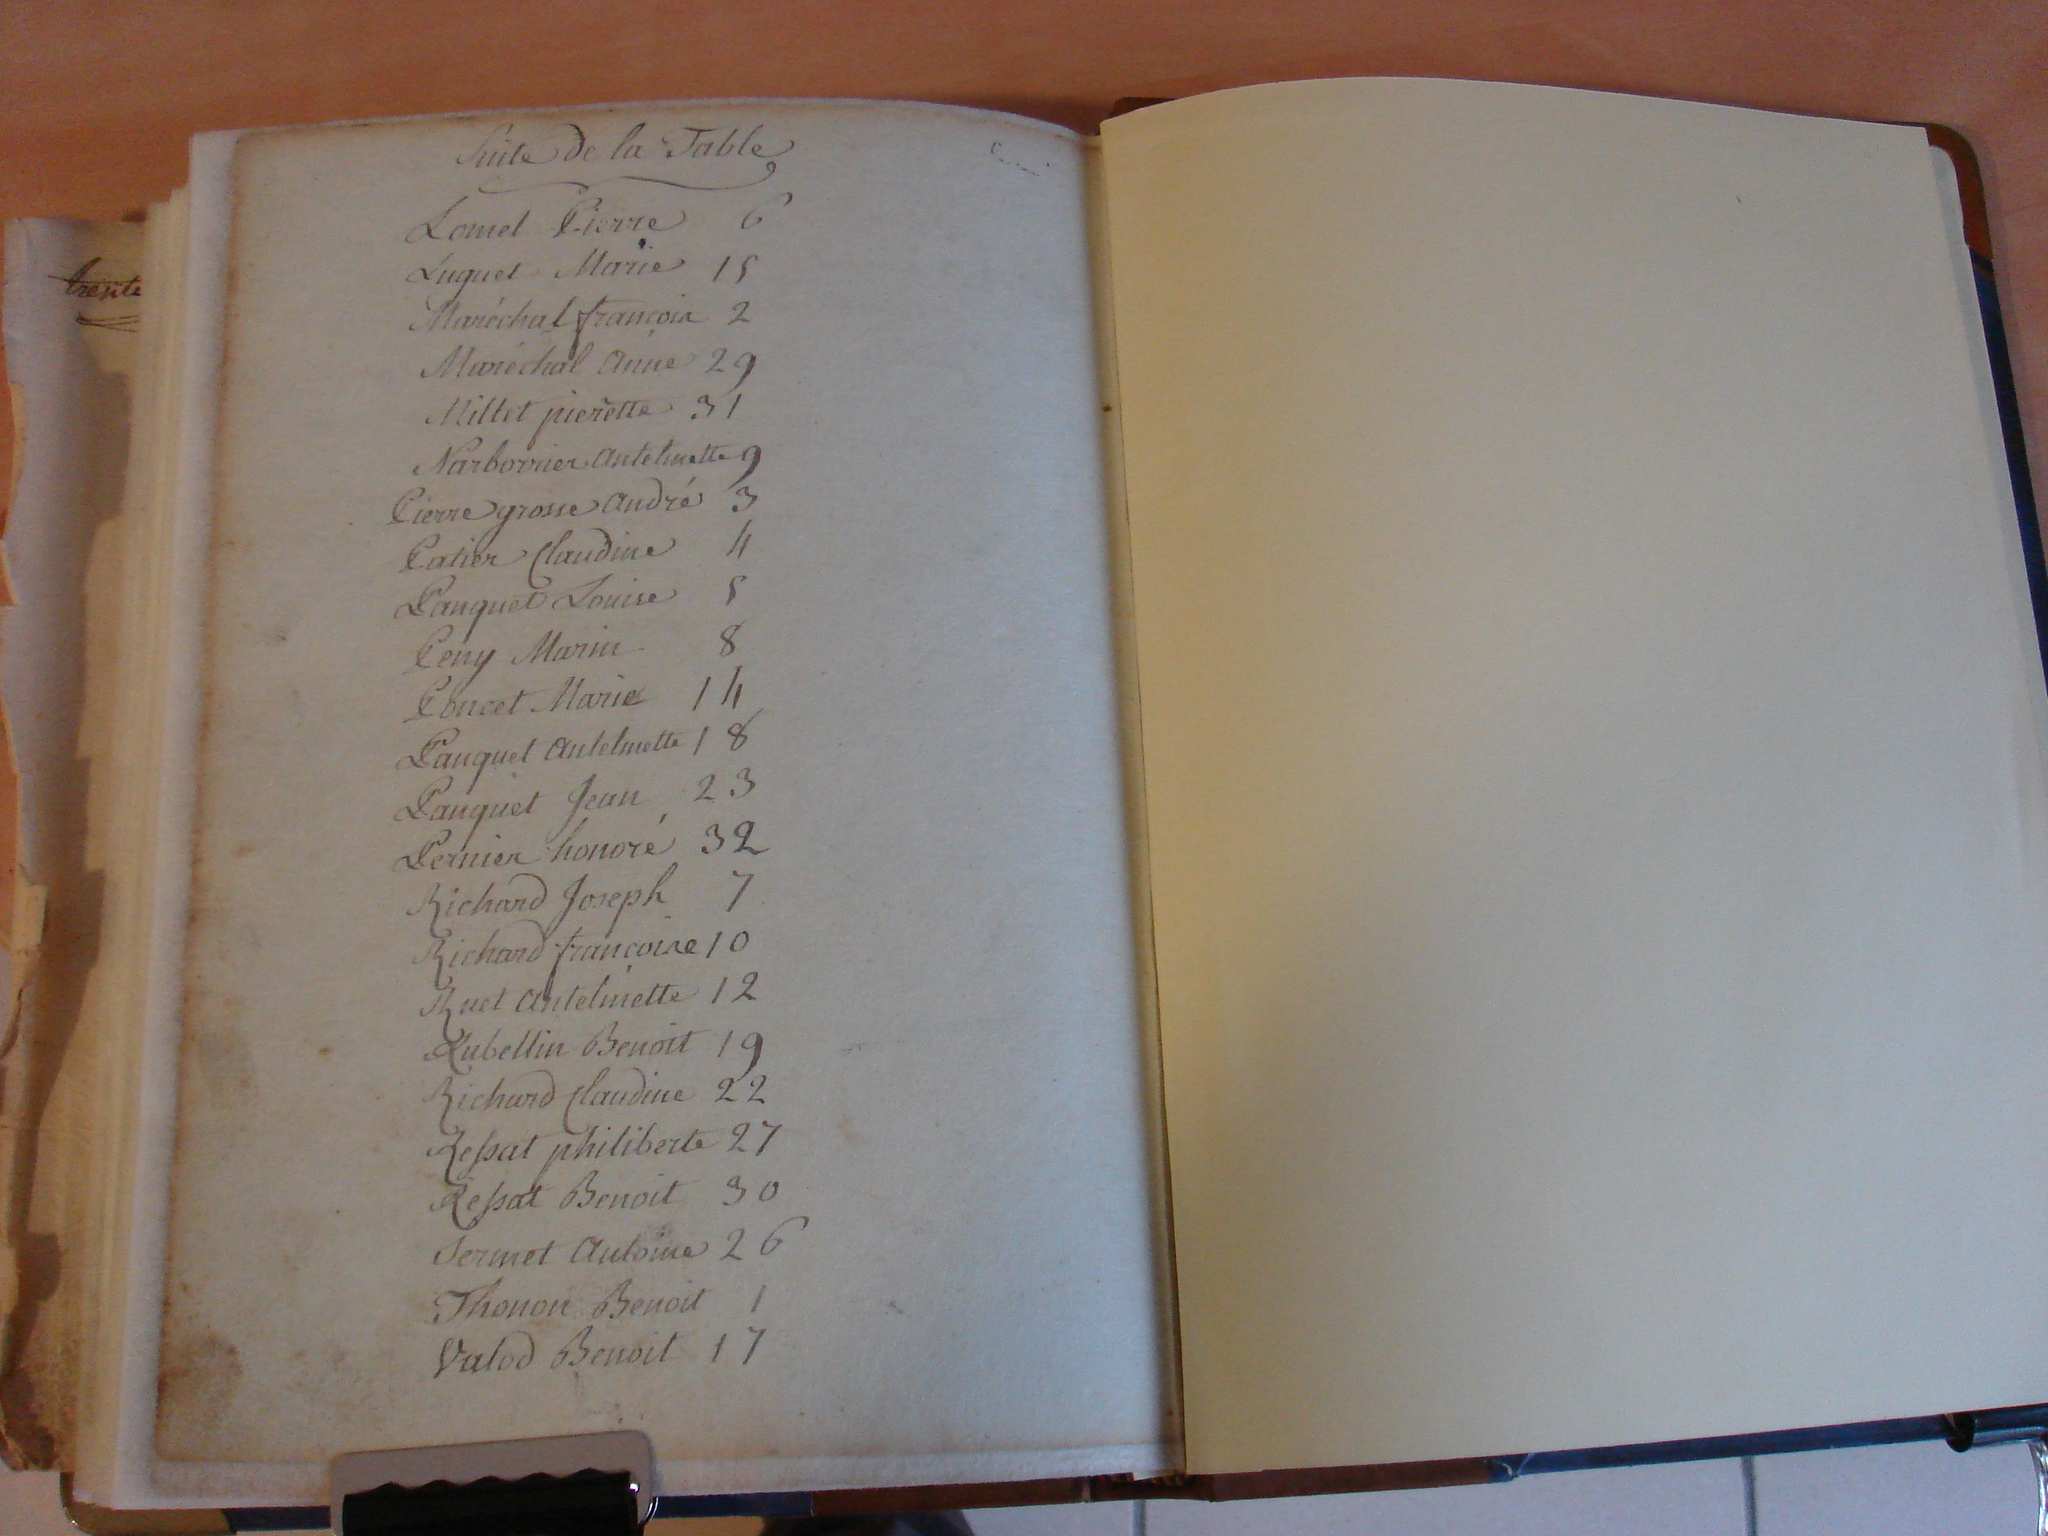 Suite de la Table
Lomel Pierre 6
Luquet Marie 15
Maréchal françois 2
Maréchal Anne 29
Millet pierette 31
Narbonnier Antelmette 9
Pierre grosse André 3
Patier Claudine 4
Pauquet Louise 5
Peny Marin 8
Poncet Marie 14
Pauquet Antelmette 18
Pauquet Jean 23
Pernier honoré 32
Richard Joseph 7
Richard françoise 10
Ruet Antelmette 12
Rubellin Benoit 19
Richard Claudine 22
Ressat philiberte 27
Ressat Benoit 30
Sermet Antoine 26
Thonon Benoit 1
Valod Benoit 17
trente